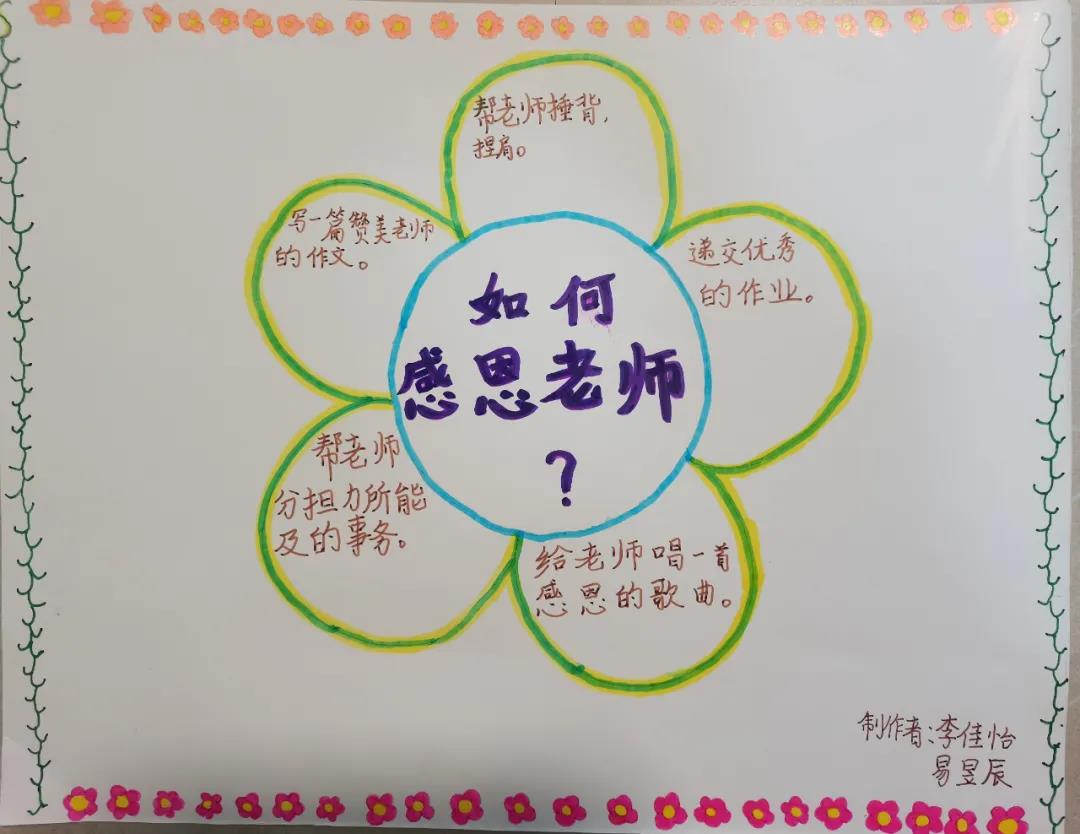 如何
感恩老师
?
帮老师捶背,
捏肩。
递交优秀
的作业。
给老师唱一首
感恩的歌曲。
帮老师
分担力所能
及的事务。
写一篇赞美老师
的作文。
制作者:李佳怡
易昱辰